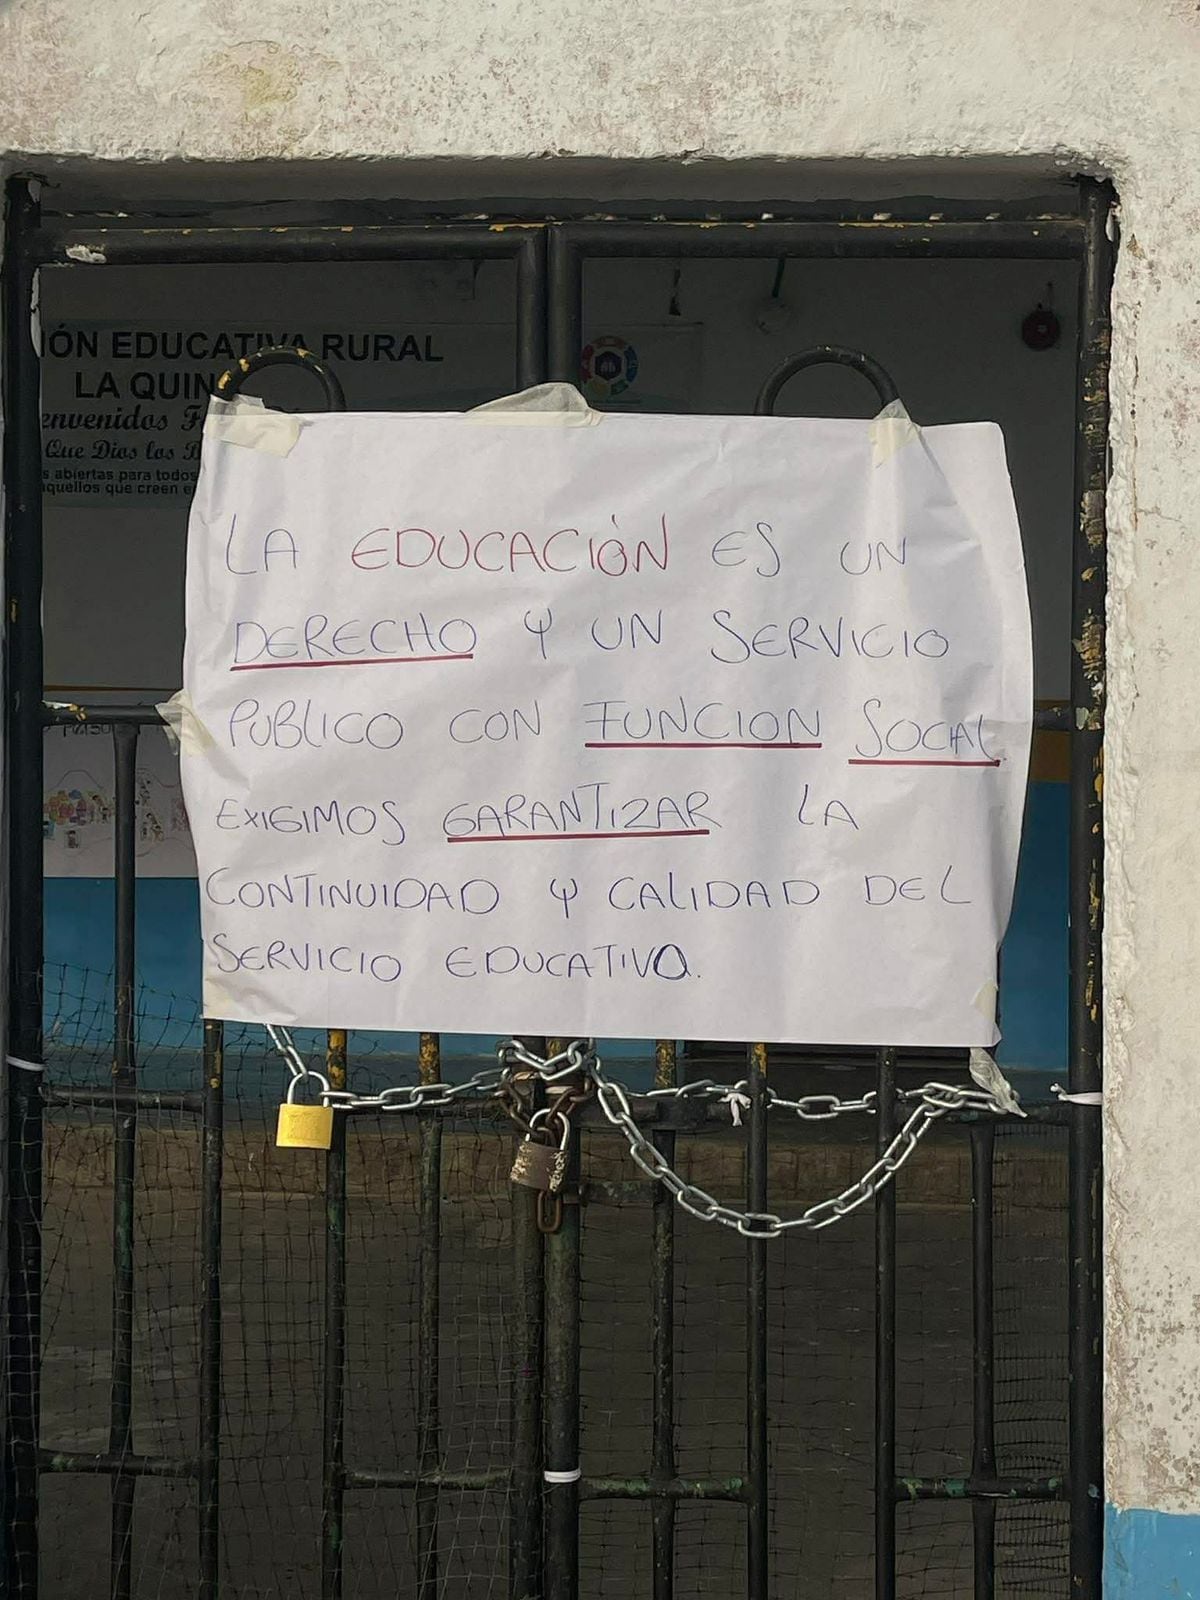 IÓN EDUCATIVA RURAL
LA QUIN
envenidos
Que Dios los
s abiertas para todos
aquellos que creen
LA EDUCACIÓN ES UN
DERECHO Y UN SERVICIO
PUBLICO CON FUNCION SOCIAL
EXIGIMOS GARANTIZAR LA
CONTINUIDAD Y CALIDAD DEL
SERVICIO EDUCATIVO.